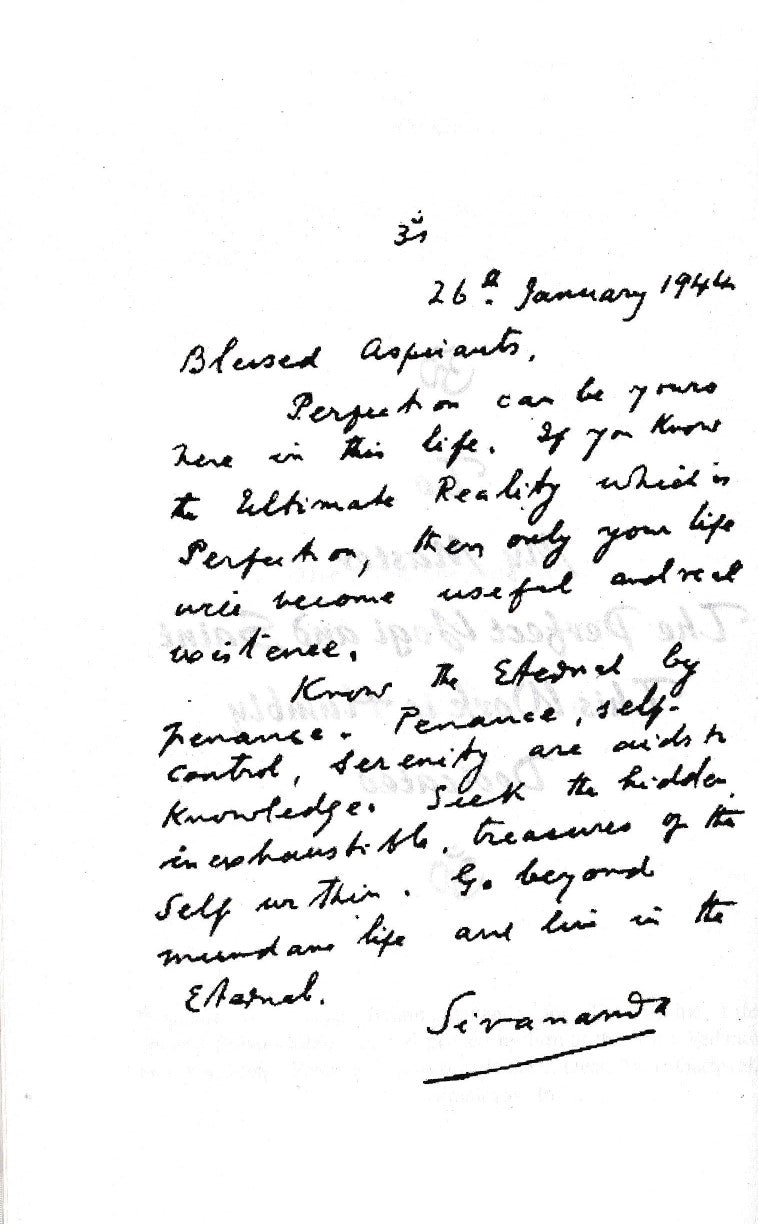 ॐ
26th January 1944
Blessed Aspirants,
Perfection can be yours
here in this life. If you know
the Ultimate Reality which is
Perfection, then only your life
will become useful and real
existence.
Know the Eternal by
penance. Penance, self-
control, serenity are aids to
knowledge. Seek the hidden,
inexhaustible, treasures of the
Self within. Go beyond
mundane life and live in the
Eternal.
Sivananda